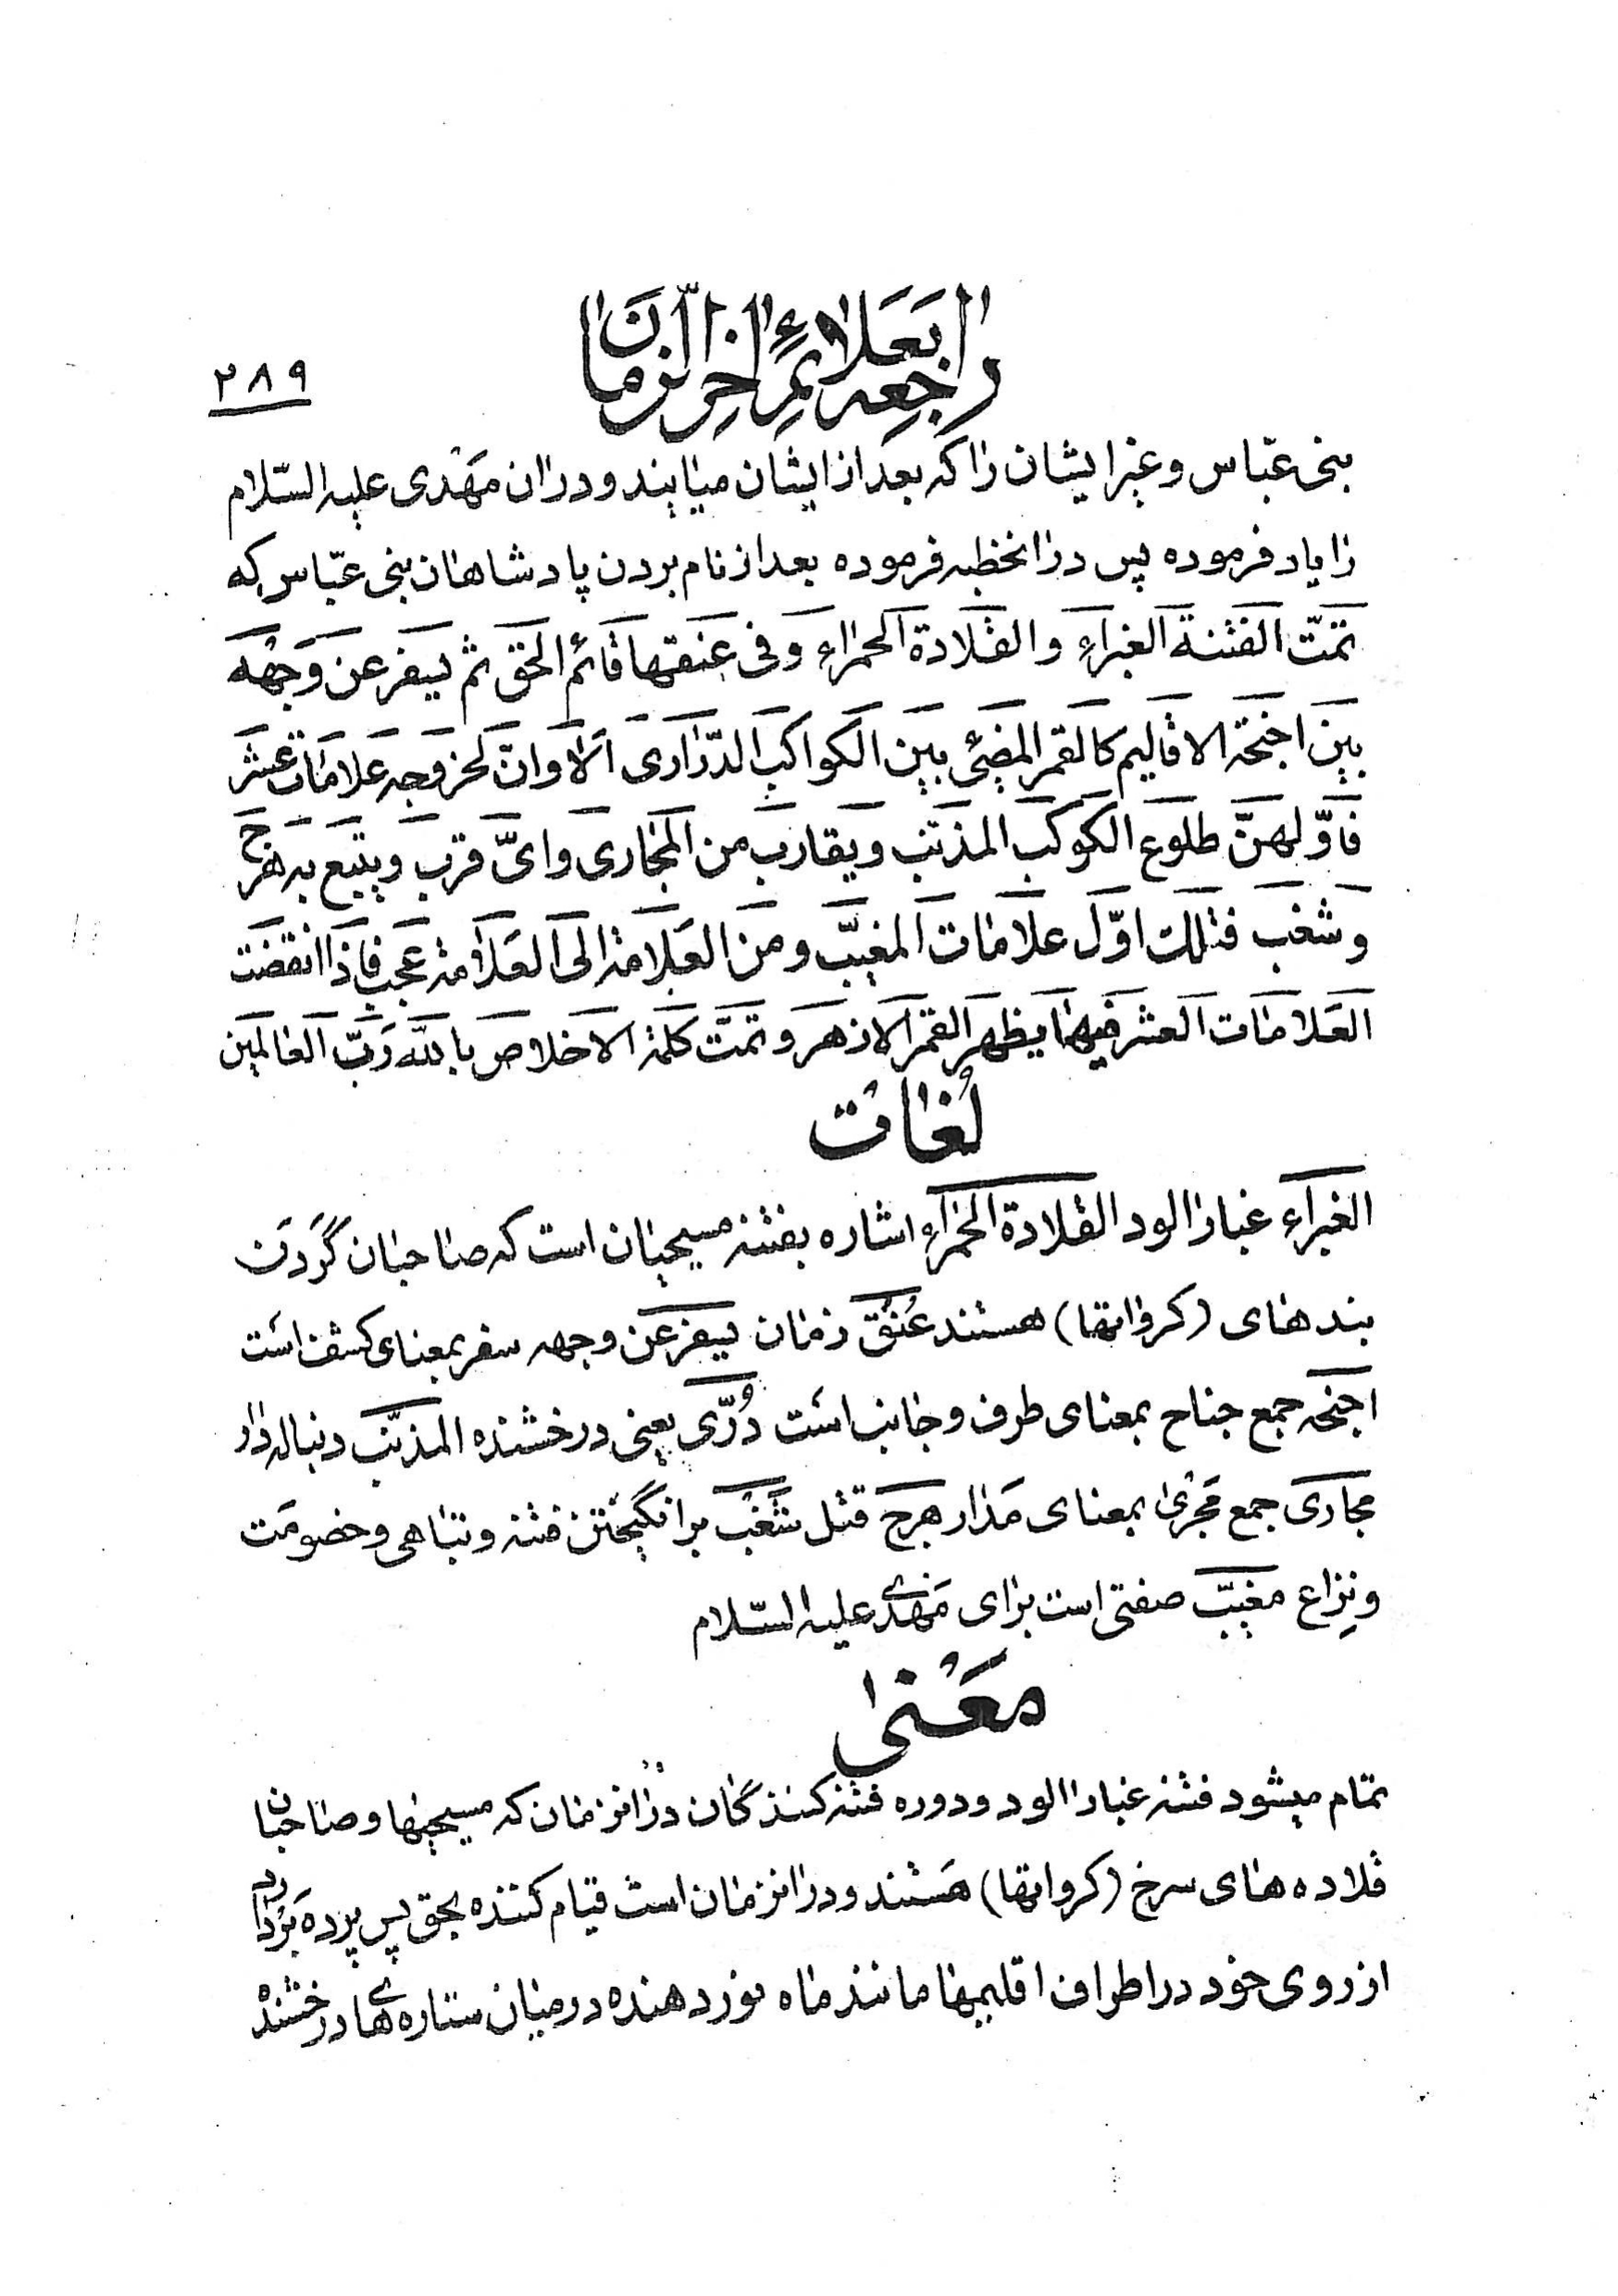 راجعه بعلائم اخر الزمان
۲۸۹
بنی عبّاس و غیر ایشان را که بعد از ایشان میایند و در ان مَهْدی علیه السّلام
را یاد فرموده پس در انخطبه فرموده بعد از نام بردن پادشاهان بنی عبّاس که
تمّت الفتنة الغبراء و القلادة الحمراء و فی عنقها قائم الحق ثم یسفر عن وَجْهه
بین اجنحة الاقالیم کالقمر المضیٔ بین الکواکب الدّراری الا و انّ لخروجه علامات عشر
فاوّلهنّ طلوع الکوکب المذنّب و یقارب من المجاری و ایّ قرب و یتبع به هرج
و شغب فتلک اوّل علامات المغیّب و من العلامة الی العلامة عجب فاذا انقضت
العلامات العشر فیها یظهر القمر الازهر و تمّت کلمة الاخلاص بالله ربّ العالمین
لُغات
الغبراء غبار الود القلادة الحمراء اشاره بفتنه مسیحیان است که صاحبان گردن
بندهای (کرواتها) هستند عُنُق زمان یسفر عن وجهه سفر بمعنای کشف است
اجنحه جمع جناح بمعنای طرف و جانب است دُرّی یعنی درخشنده المذنّب دنباله دار
مجاری جمع مَجْری بمعنای مَدار هرج قتل شَغَب برانگیختن فتنه و تباهی و خصومت
و نِزاع مغیّب صفتی است برای مَهْدی علیه السّلام
مَعْنی
تمام میشود فتنه غبار الود و دوره فتنه کنندگان در انزمان که مسیحیها و صاحبان
قلاده های سرخ (کرواتها) هَستند و در انزمان است قیام کننده بحق پس پرده بردارد
از روی خود در اطراف اقلیمها مانند ماه نور دهنده در میان ستاره های درخشنده